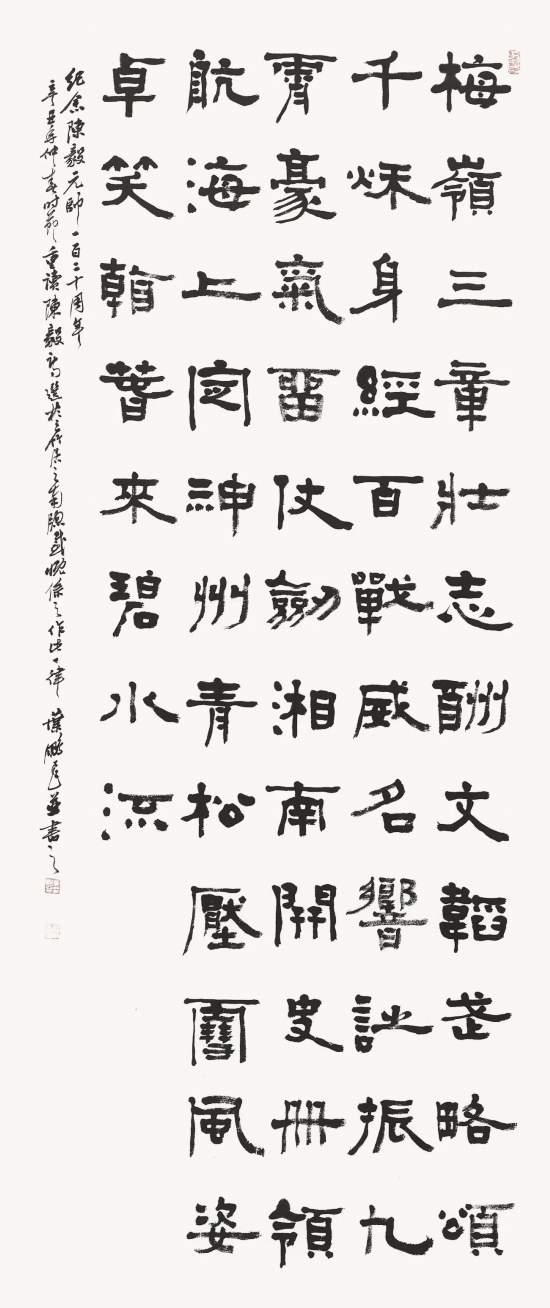 梅嶺三章壯志酬文韜武略頌
千秋身經百戰威名響詠振九
霄豪氣留仗劍湘南開史冊領
航海上定神州青松壓雪風姿
卓笑春來碧水流
紀念陳毅元帥一百二十周年
辛丑年仲春時節重讀陳毅詩選於居之南窗感慨係之作此一律 葉鵬飛並書之